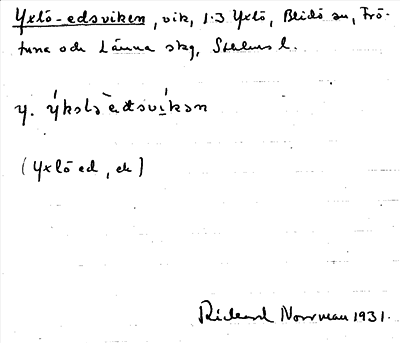 Yxlö-edsviken, vik, 1.3 Yxlö, Blidö sn, Frö-
tuna och Länna skg, Sthlms l.
y. ýkslöèdsvìkən
(Yxlö ed, ek)
Rickard Norrman 1931.